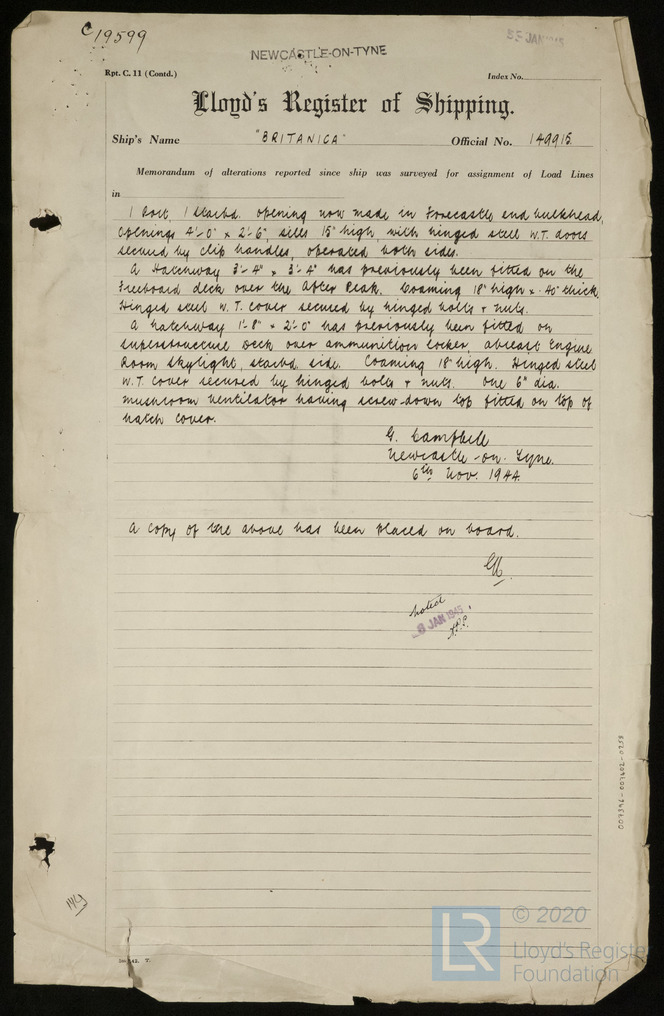 C19599
NEWCASTLE-ON-TYNE
JAN 1945
Rpt. C. 11 (Contd.)
Index No.
Lloyd's Register of Shipping.
Ship's Name "BRITANICA" Official No. 149915.
Memorandum of alterations reported since ship was surveyed for assignment of Load Lines
in
1 Port, 1 Starbd. opening now made in Forecastle end bulkhead,
openings 4'-0" x 2'-6", sills 15" high, with hinged steel W.T. doors
secured by clip handles, operated both sides.
A Hatchway 3'-4" x 3'-4" has previously been fitted on the
Freeboard deck over the After Peak. Coaming 18" high x .40" thick.
Hinged steel W.T. cover secured by hinged bolts & nuts.
A hatchway 1'-8" x 2'-0" has previously been fitted on
superstructure deck over ammunition locker, abreast Engine
Room skylight, starbd. side. Coaming 18" high. Hinged steel
W.T. cover secured by hinged bolts & nuts. One 6" dia.
mushroom ventilator having screw-down top fitted on top of
hatch cover.
G. Campbell
Newcastle-on-Tyne.
6th Nov. 1944.
A copy of the above has been placed on board.
noted
8 JAN 1945
007396-007602-0258
© 2020
LR
Lloyd's Register
Foundation